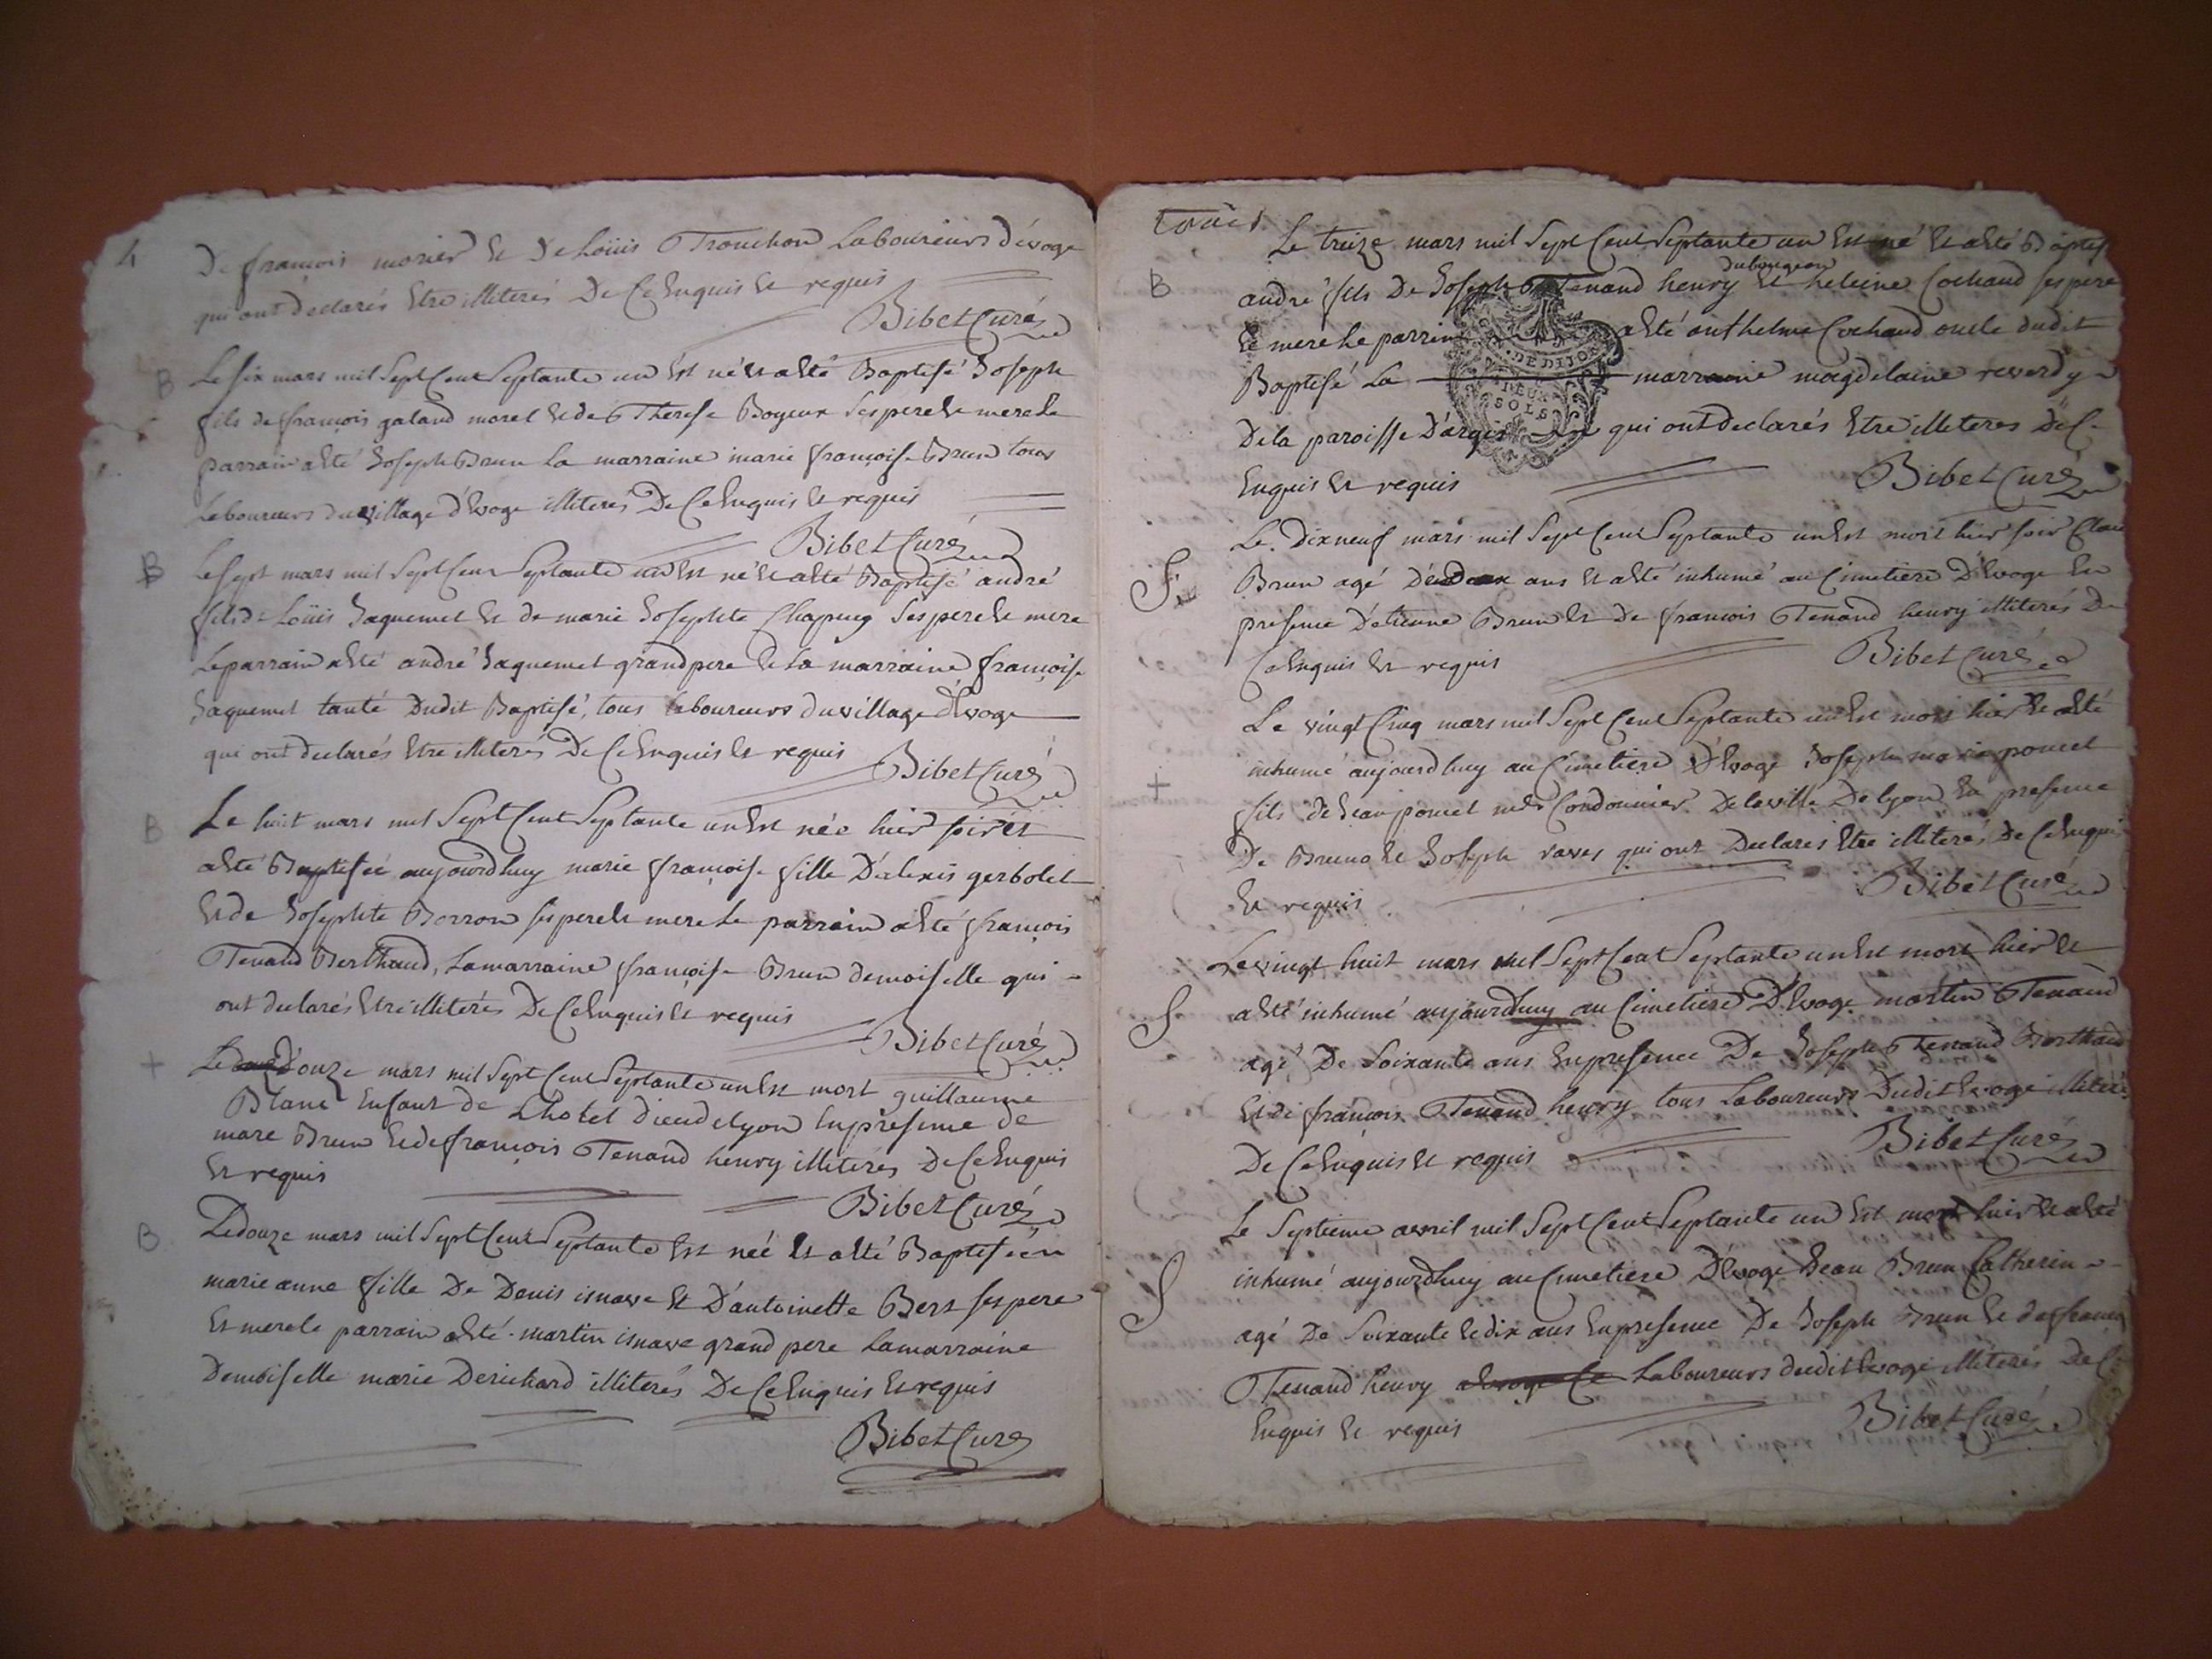 4
De francois morier Et De Loüis Tronchon Laboureurs d'évoge
qui ont declarés Etre illiterés De Ce Enquis Et requis
Bibet Curé
B
Le six mars mil Sept Cent Septante un Est né Et a Eté Baptisé Joseph
fils de françois galand morel Et de Therese Boyeux Ses pere Et mere Le
parrain a Eté Joseph Brun La marraine marie françoise Brun tous
Laboureurs du village d'Evoge illiterés De Ce Enquis Et requis
Bibet Curé
B
Le sept mars mil Sept Cent Septante un Est né Et a Eté Baptisé andré
fils de Loüis Jaquemet Et de marie Josephte Chapuy Ses pere Et mere
Le parrain a Eté andré Jaquemet grand pere Et La marraine françoise
Jaquemet tante Dudit Baptisé, tous laboureurs du village d'Evoge
qui ont declarés Etre illiterés De Ce Enquis Et requis
Bibet Curé
B
Le huit mars mil Sept Cent Septante un Est née hier soir Et
a Eté Baptisée aujourdhuy marie françoise fille D'alexis gerbolet
Et de Josephte Borron ses pere Et mere Le parrain a Eté françois
Tenand Berthaud, La marraine françoise Brun demoiselle qui
ont declarés Etre illiterés De Ce Enquis Et requis
Bibet Curé
+
Le douze mars mil Sept Cent Septante un Est mort guillaume
Blanc Enfant de L'hotel dieu de lyon En presence de
marc Brun Et de françois Tenand henry illiterés De Ce Enquis
Et requis
Bibet Curé
B
Le douze mars mil Sept Cent Septante Est née Et a Eté Baptisée
marie anne fille De Denis isnave Et D'antoinette Bers ses pere
Et mere Le parrain a Eté martin isnave grand pere La marraine
Demoiselle marie Derichard illiterés De Ce Enquis Et requis
Bibet Curé
B
Le treize mars mil Sept Cent Septante un Est né Et a Eté Baptisé
dubougeon
andré fils De Joseph Tenand henry Et heleine Cochand ses pere
Et mere Le parrain a Eté anthelme Cochand oncle dudit
DE DIJON
DEUX
SOLS
Baptisé La marraine magdelaine reverdy
De la paroisse D'argis qui ont declarés Etre illiteres De Ce
Enquis Et requis
Bibet Curé
S
Le Dix neuf mars mil Sept Cent Septante un Est mort hier soir
Brun agé ans Et a Eté inhumé au Cimetiere D'Evoge En
présence D'etienne Brun Et De francois Tenand henry illiterés De
Ce Enquis Et requis
Bibet Curé
+
Le vingt Cinq mars mil Sept Cent Septante un Est mort hier Et a Eté
inhumé aujourdhuy au Cimetiere D'Evoge Joseph marie poncet
fils de Jean poncet mtre Cordonnier De la ville De lyon En presence
De Bruno Et Joseph raves qui ont Declarés Etre illiterés De Ce Enquis
Et requis
Bibet Curé
S
Le vingt huit mars mil Sept Cent Septante un Est mort hier Et
a Eté inhumé aujourdhuy au Cimetiere D'Evoge martin Tenand
agé De Soixante ans En presence De Joseph Tenand Berthaud
Et de francois Tenand henry tous Laboureurs Dudit Evoge illiterés
De Ce Enquis Et requis
Bibet Curé
S
Le Septieme avril mil Sept Cent Septante un Est mort hier Et a Eté
inhumé aujourdhuy au Cimetiere D'Evoge Jean Brun Catherin
agé De Soixante Et dix ans En presence De Joseph Brun Et de francois
Tenand henry Laboureurs dudit Evoge illiterés De Ce
Enquis Et requis
Bibet Curé